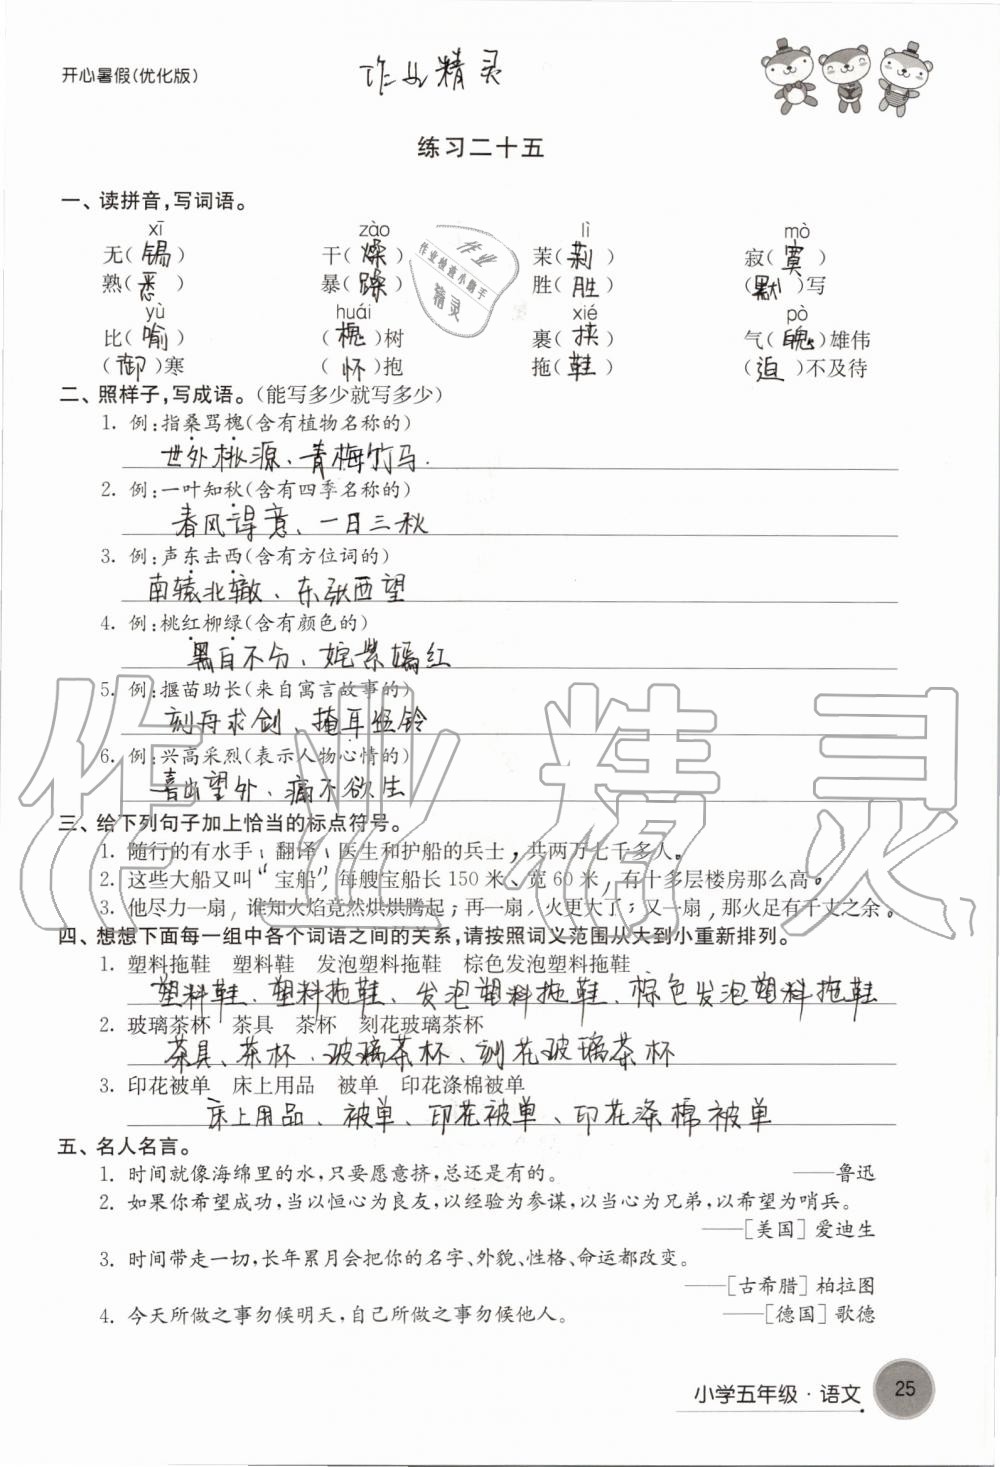 开心暑假(优化版)
作业精灵
练习二十五
一、读拼音,写词语。
xī zào lì mò
无(锡) 干(燥) 茉(莉) 寂(寞)
熟(悉) 暴(躁) 胜(胜) (默)写
yù huái xié pò
比(喻) (槐)树 裹(挟) 气(魄)雄伟
(御)寒 (怀)抱 拖(鞋) (迫)不及待
二、照样子,写成语。(能写多少就写多少)
1. 例:指桑骂槐(含有植物名称的)
世外桃源、青梅竹马.
2. 例:一叶知秋(含有四季名称的)
春风得意、一日三秋
3. 例:声东击西(含有方位词的)
南辕北辙、东张西望
4. 例:桃红柳绿(含有颜色的)
黑白不分、姹紫嫣红
5. 例:揠苗助长(来自寓言故事的)
刻舟求剑、掩耳盗铃
6. 例:兴高采烈(表示人物心情的)
喜出望外、痛不欲生
三、给下列句子加上恰当的标点符号。
1. 随行的有水手、翻译、医生和护船的兵士,共两万七千多人。
2. 这些大船又叫“宝船”,每艘宝船长150米、宽60米,有十多层楼房那么高。
3. 他尽力一扇,谁知火焰竟然烘烘腾起;再一扇,火更大了;又一扇,那火足有千丈之余。
四、想想下面每一组中各个词语之间的关系,请按照词义范围从大到小重新排列。
1. 塑料拖鞋 塑料鞋 发泡塑料拖鞋 棕色发泡塑料拖鞋
塑料鞋、塑料拖鞋、发泡塑料拖鞋、棕色发泡塑料拖鞋
2. 玻璃茶杯 茶具 茶杯 刻花玻璃茶杯
茶具、茶杯、玻璃茶杯、刻花玻璃茶杯
3. 印花被单 床上用品 被单 印花涤棉被单
床上用品、被单、印花被单、印花涤棉被单
五、名人名言。
1. 时间就像海绵里的水,只要愿意挤,总还是有的。 ——鲁迅
2. 如果你希望成功,当以恒心为良友,以经验为参谋,以当心为兄弟,以希望为哨兵。
——[美国]爱迪生
3. 时间带走一切,长年累月会把你的名字、外貌、性格、命运都改变。
——[古希腊]柏拉图
4. 今天所做之事勿候明天,自己所做之事勿候他人。 ——[德国]歌德
小学五年级·语文 25
作业
作业检查小助手
精灵
作业精灵